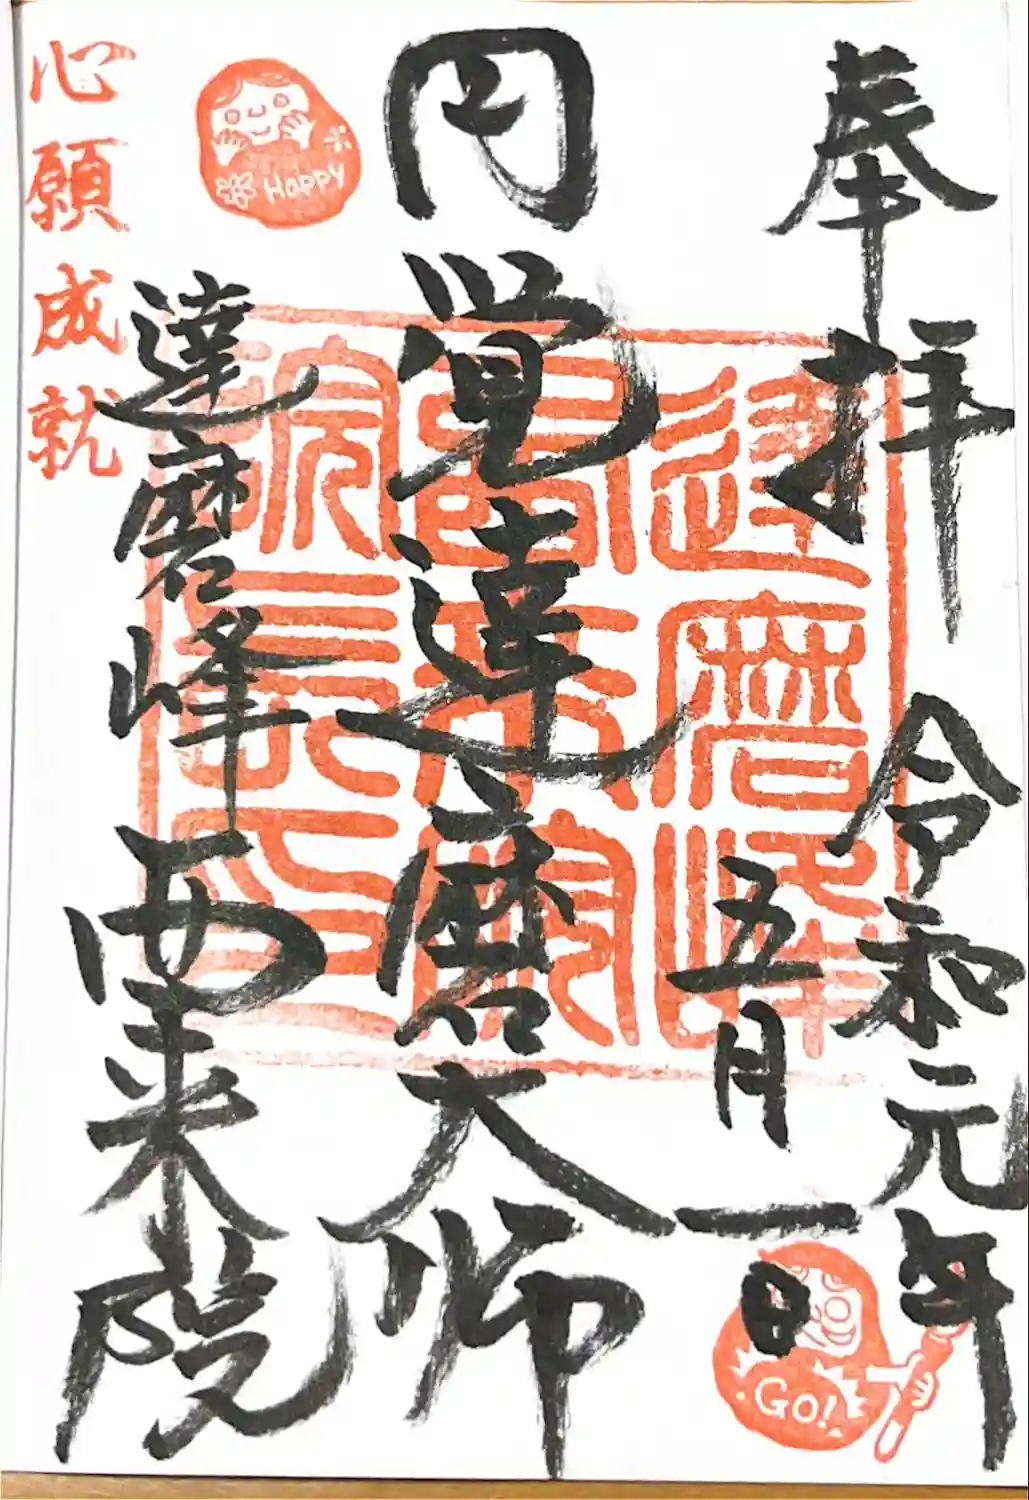 奉拝
令和元年
五月一日
GO!
達磨峰
円覚達磨大師
Happy
達磨峰
西来院
心願成就